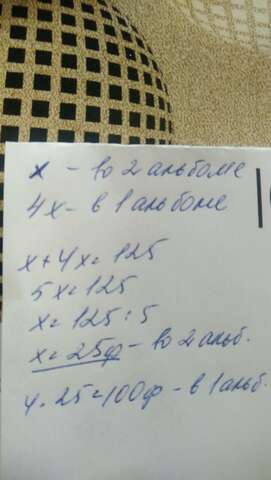 x – во 2 альбоме
4x – в 1 альбоме
x+4x=125
5x=125
x=125:5
x=25ф – во 2 альб.
4·25=100ф – в 1 альб.